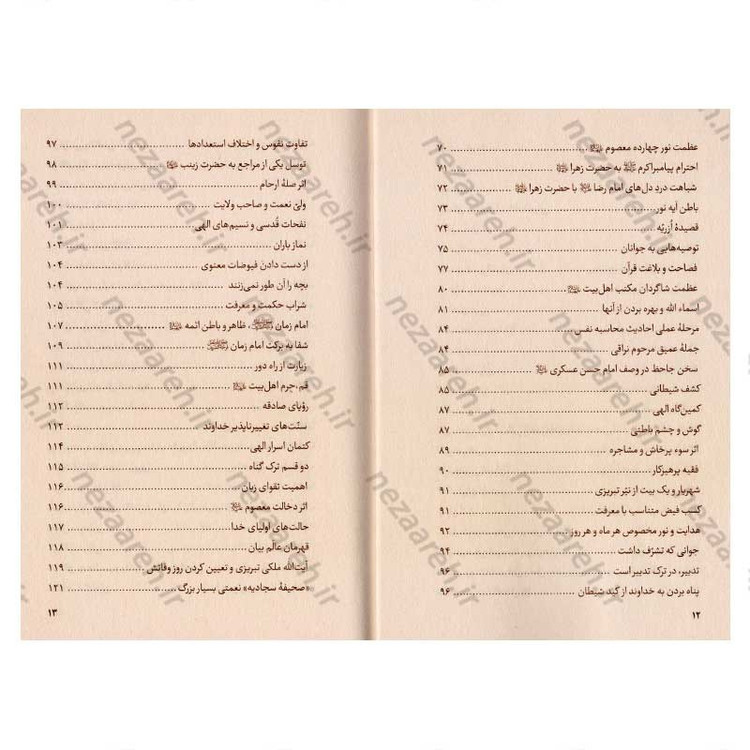 عظمت نور چهارده معصوم ﷺ ۷۰
احترام پیامبراکرم ﷺ به حضرت زهرا ﷺ ۷۱
شباهت درد دل‌های امام رضا ﷺ با حضرت زهرا ﷺ ۷۲
باطن آیه نور ۷۳
قصیدهٔ اُزریّه ۷۴
توصیه‌هایی به جوانان ۷۵
فصاحت و بلاغت قرآن ۷۷
عظمت شاگردان مکتب اهل‌بیت ﷺ ۸۰
اسماء الله و بهره بردن از آنها ۸۱
مرحلهٔ عملی احادیث محاسبه نفس ۸۴
جملهٔ عمیق مرحوم نراقی ۸۴
سخن جاحظ در وصف امام حسن عسکری ﷺ ۸۵
کشف شیطانی ۸۵
کمین‌گاه الهی ۸۷
گوش و چشم باطنی ۸۷
اثر سوء پرخاش و مشاجره ۸۹
فقیه پرهیزکار ۹۰
شهریار و یک بیت از نیّر تبریزی ۹۱
کسب فیض متناسب با معرفت ۹۱
هدایت و نور مخصوص هر ماه و هر روز ۹۲
جوانی که تشرّف داشت ۹۴
تدبیر، در ترک تدبیر است ۹۶
پناه بردن به خداوند از کید شیطان ۹۶
۱۲
تفاوت نفوس و اختلاف استعدادها ۹۷
توسل یکی از مراجع به حضرت زینب ﷺ ۹۸
اثر صلهٔ ارحام ۹۹
ولیّ نعمت و صاحب ولایت ۱۰۰
نفحات قُدسی و نسیم‌های الهی ۱۰۱
نماز باران ۱۰۳
از دست دادن فیوضات معنوی ۱۰۴
بچه را آن طور نمی‌زنند ۱۰۴
شراب حکمت و معرفت ۱۰۵
امام زمان ﷺ، ظاهر و باطن ائمه ﷺ ۱۰۷
شفا به برکت امام زمان ﷺ ۱۰۹
زیارت از راه دور ۱۱۱
قم، حرم اهل‌بیت ﷺ ۱۱۱
رؤیای صادقه ۱۱۲
سنّت‌های تغییرناپذیر خداوند ۱۱۲
کتمان اسرار الهی ۱۱۴
دو قسم ترک گناه ۱۱۵
اهمیت تقوای زبان ۱۱۶
اثر دخالت معصوم ﷺ ۱۱۶
حالت‌های اولیای خدا ۱۱۷
قهرمان عالَم بیان ۱۱۸
آیت‌الله ملکی تبریزی و تعیین کردن روز وفاتش ۱۱۹
«صحیفهٔ سجادیه» نعمتی بسیار بزرگ ۱۲۱
۱۳
nezaareh.ir